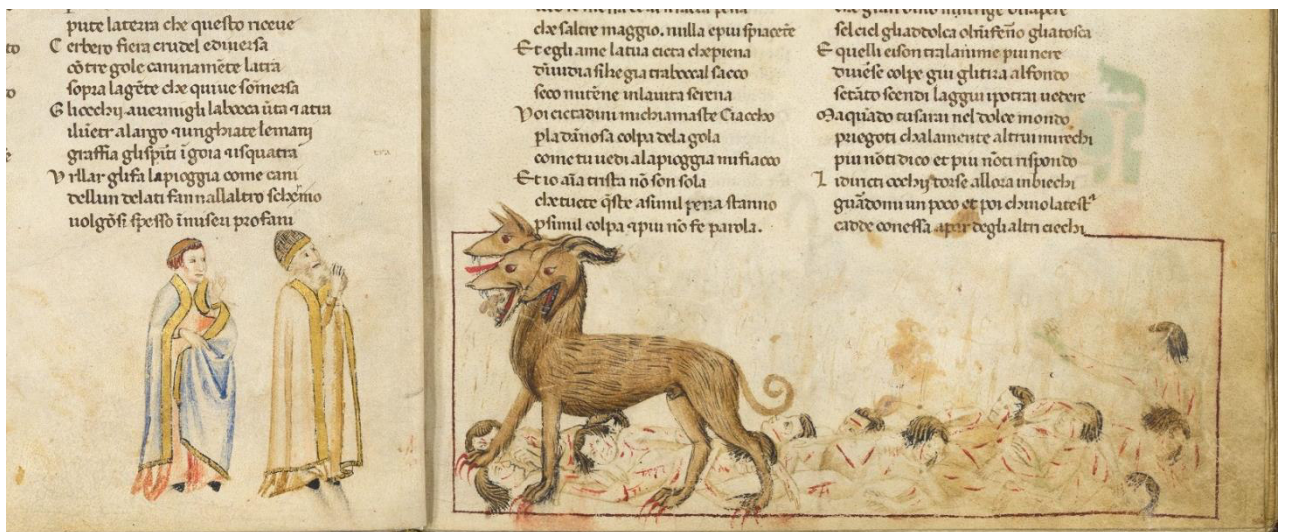 pute laterra che questo riceue
C erbero fiera crudel ediuersa
cō tre gole caninamēte latra
sopra lagēte che quiue sōmersa
G liocchij auermigli labocca ūta ꝛ atra
iluētr alargo ꝛ unghiate lemanj
graffia glispiti ī goia ꝛ isquatra
V rllar glifa lapioggia come cani
dellun delati fan nallaltro schermo
uolgōsi spesso īmiseri profani
che saltre maggio. nulla e piu spiacēte
E t egli ame latua citta chepiena
dīuidia si che gia trabocca l sacco
seco mi tēne inlauita serena
V oi cittadini michiamaste Ciaccho
p la dānosa colpa dela gola
come tu uedi alapioggia mi fiacco
E t io aīa trista nō son sola
che tucte q̄ste asimil pena stanno
p simil colpa ꝛ piu nō fe parola.
sel ciel gliaddolca olinferno gliatosca
E quelli eison tralanime piu nere
diuēse colpe giu gli tira alfondo
se tāto scendi laggiu ipotrai uedere
M a quādo tu sarai nel dolce mondo
priegoti chalamente altrui mirechi
piu nō ti dico et piu nō ti rispondo
L idiricti occhij torse allora inbiechi
guādōmi un poco et poi chino latestᵃ
cadde con essa apar degli altri ciechi